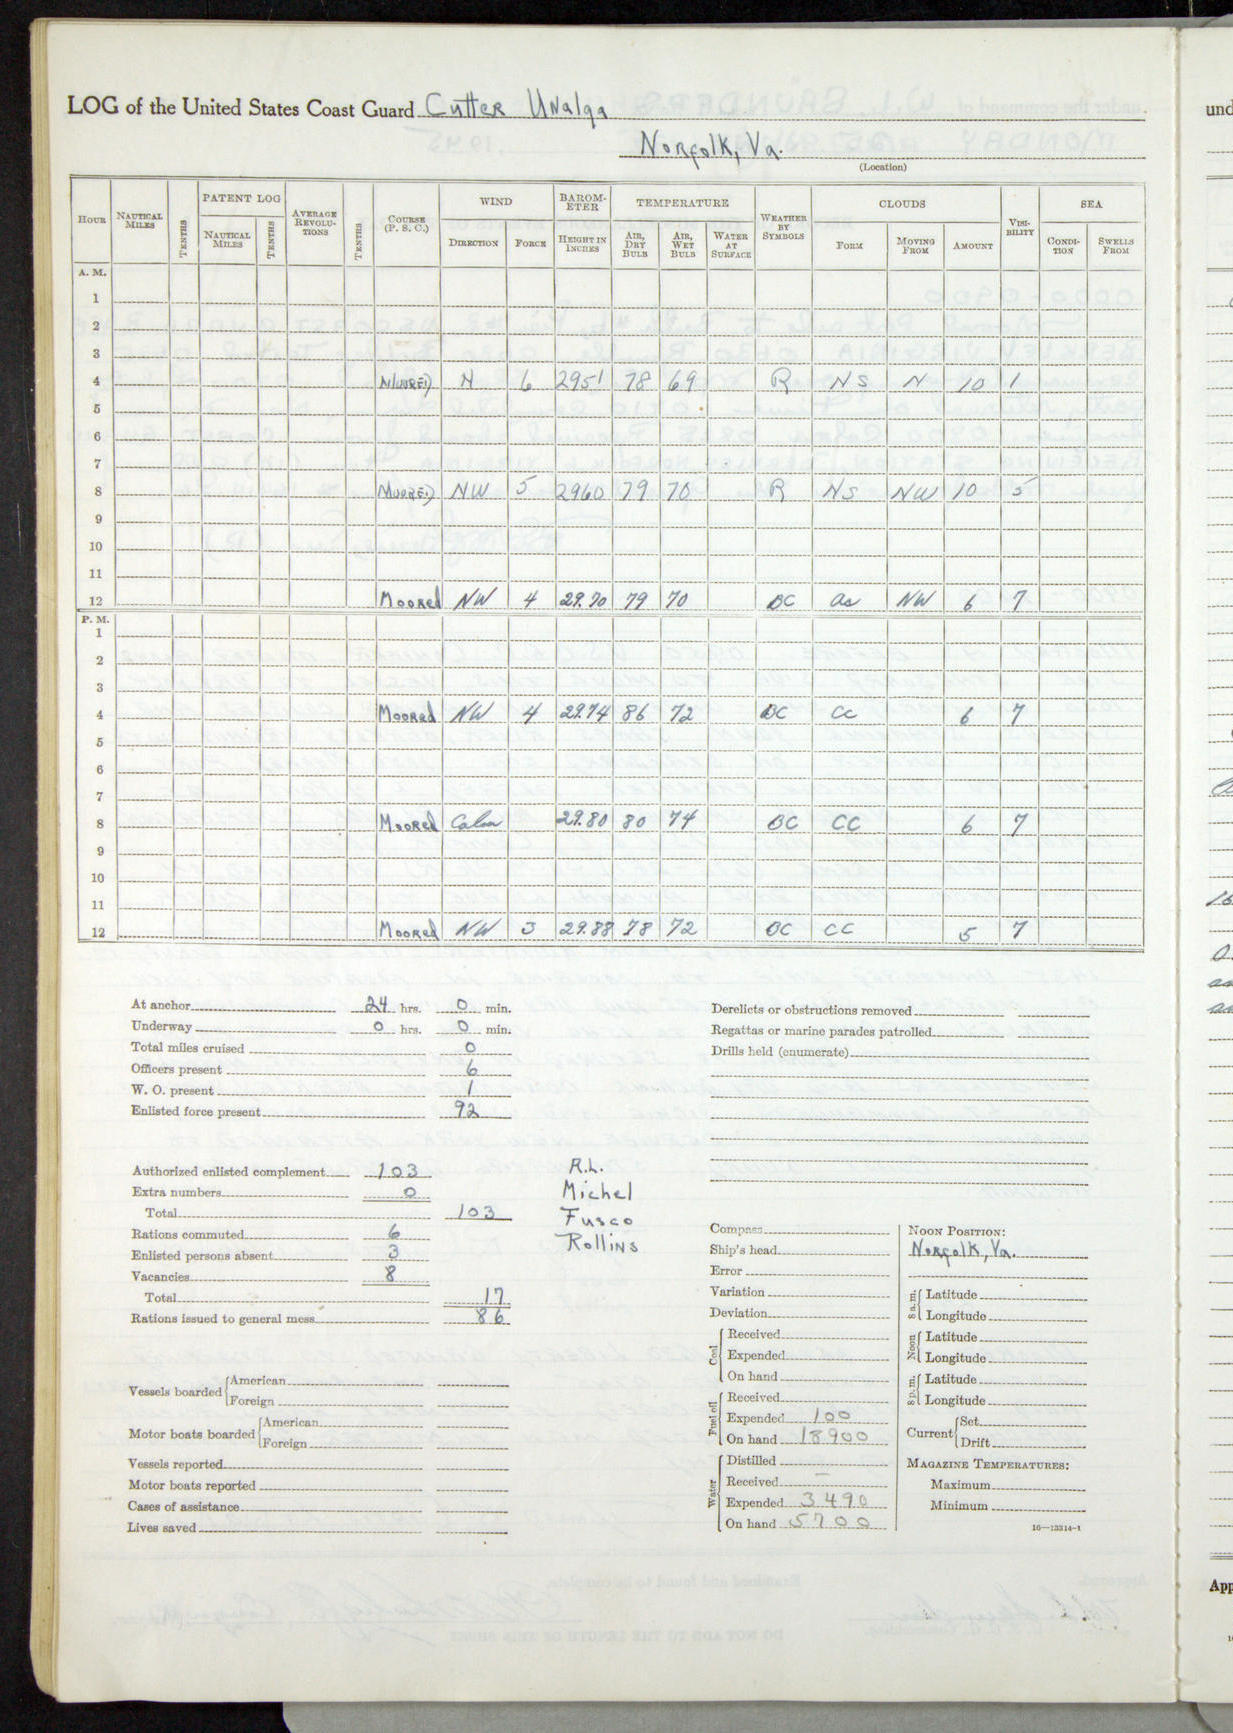 LOG of the United States Coast Guard Cutter Unalga
Norfolk, Va.
(Location)
HOUR NAUTICAL MILES TENTHS PATENT LOG NAUTICAL MILES TENTHS AVERAGE REVOLUTIONS TENTHS COURSE (P. S. C.) WIND DIRECTION FORCE BAROMETER HEIGHT IN INCHES TEMPERATURE AIR, DRY BULB AIR, WET BULB WATER AT SURFACE WEATHER BY SYMBOLS CLOUDS FORM MOVING FROM AMOUNT VISIBILITY SEA CONDITION SWELLS FROM
A. M.
1
2
3
4 MOORED N 6 2951 78 69 R NS N 10 1
5
6
7
8 MOORED NW 5 2960 79 70 R NS NW 10 5
9
10
11
12 Moored NW 4 29.70 79 70 BC As NW 6 7
P. M.
1
2
3
4 Moored NW 4 29.74 86 72 BC CC 6 7
5
6
7
8 Moored Calm 29.80 80 74 BC CC 6 7
9
10
11
12 Moored NW 3 29.88 78 72 BC CC 5 7
At anchor 24 hrs. 0 min.
Underway 0 hrs. 0 min.
Total miles cruised 0
Officers present 6
W. O. present 1
Enlisted force present 92
Authorized enlisted complement 103
Extra numbers 0
Total 103
Rations commuted 6
Enlisted persons absent 3
Vacancies 8
Total 17
Rations issued to general mess 86
R.L.
Michel
Fusco
Rollins
Vessels boarded American
Foreign
Motor boats boarded American
Foreign
Vessels reported
Motor boats reported
Cases of assistance
Lives saved
Derelicts or obstructions removed
Regattas or marine parades patrolled
Drills held (enumerate)
Compass
Ship's head
Error
Variation
Deviation
Coal Received
Expended
On hand
Fuel oil Received
Expended 100
On hand 18900
Water Distilled
Received —
Expended 3490
On hand 5700
NOON POSITION:
Norfolk, Va.
8 a. m. Latitude
Longitude
Noon Latitude
Longitude
8 p. m. Latitude
Longitude
Current Set
Drift
MAGAZINE TEMPERATURES:
Maximum
Minimum
16—13314-1
und
App